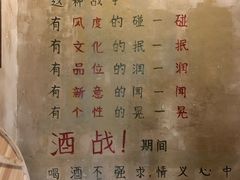 这种战争
有风度的碰一碰
有文化的抿一抿
有品位的润一润
有新意的闻一闻
有个性的晃一晃
酒战！期间
喝酒不强求，情义心中